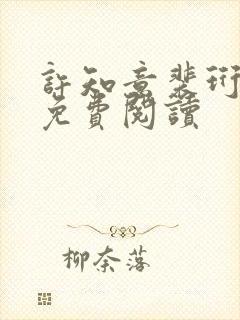 許知意裴珩
免費閱讀
柳奈落